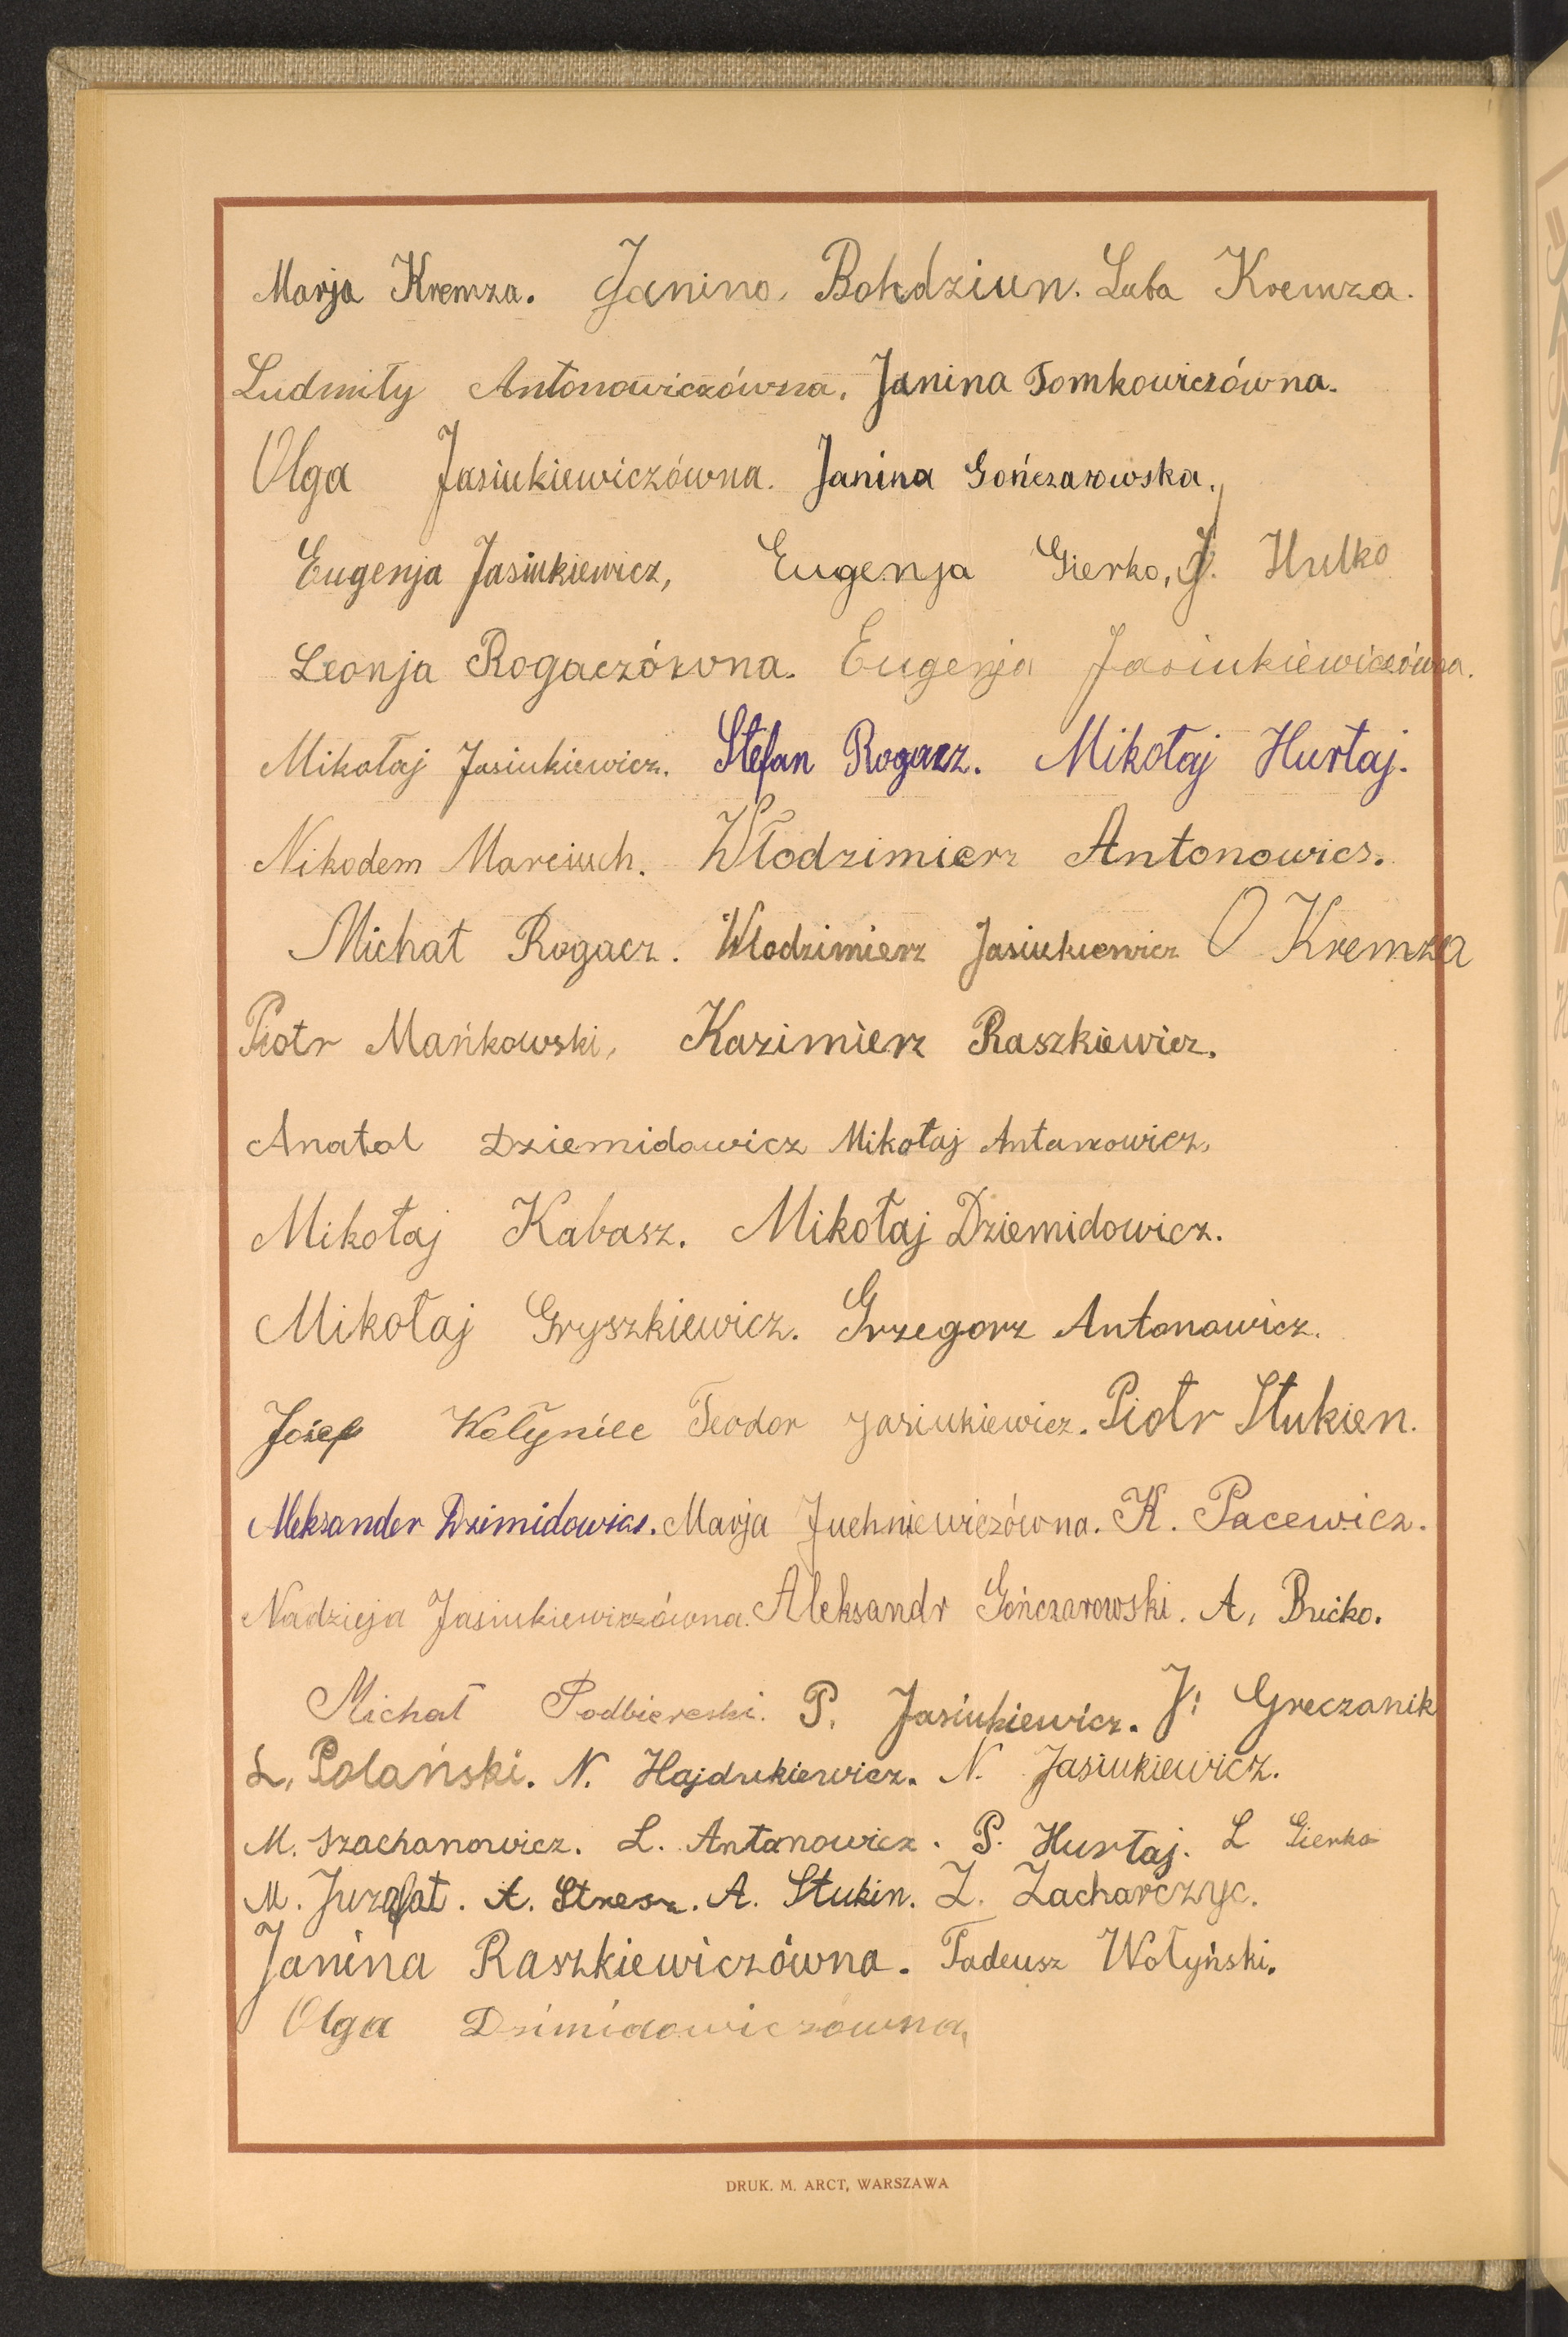 Marja Kremza. Janina. Bohdziun. Luba Kremza.
Ludmiły Antonowiczówna. Janina Tomkowiczówna.
Olga Jasiukiewiczówna. Janina Gończarowska.
Eugenja Jasiukiewicz, Eugenja Gierko, J. Hulko
Leonja Rogaczówna. Eugenja Jasiukiewiczówna.
Mikołaj Jasiukiewicz. Stefan Rogacz. Mikołaj Hurłaj.
Nikodem Marciuch. Włodzimierz Antonowicz.
Michał Rogacz. Wlodzimierz Jasiukiewicz O Kremza
Piotr Mańkowski, Kazimierz Raszkiewicz.
Anatol Dziemidowicz Mikołaj Antanowicz,
Mikołaj Kabasz. Mikołaj Dziemidowicz.
Mikołaj Gryszkiewicz. Grzegorz Antonowicz.
Józef Wołyniec Teodor Jasiukiewicz. Piotr Stukien.
Aleksander Dzimidowicz. Marja Juchniewiczówna. K. Pacewicz.
Nadzieja Jasiukiewiczówna. Aleksandr Gończarowski. A. Bućko.
Michał Podbiereski. P. Jasiukiewicz. J. Greczanik
L. Polański. N. Hajdukiewicz. N. Jasiukiewicz.
M. Szachanowicz. L. Antanowicz. P. Hurłaj. L Gierko
M. Juzafat. A. Stresz. A. Stukin. Z. Zacharczyc.
Janina Raszkiewiczówna. Tadeusz Wołyński.
Olga Dzimidowiczówna,
DRUK. M. ARCT, WARSZAWA